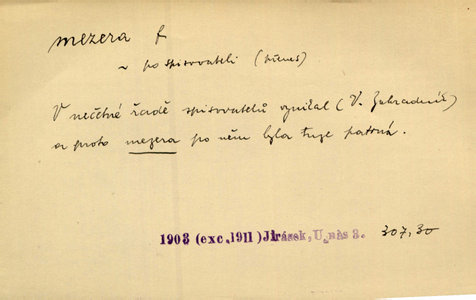 mezera f
~ po spisovateli (přenes)
V nečetné řadě spisovatelů vynikal (V. Zahradník)
a proto mezera po něm byla tuze patrná.
1903 (exc. 1911) Jirásek, U nás 3. 307,30